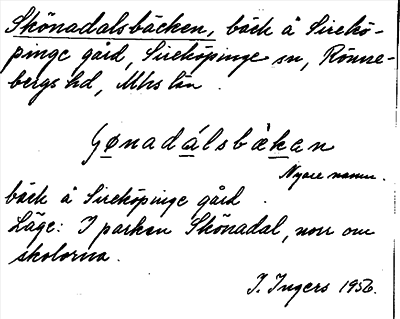 Skönadalsbäcken, bäck å Sirekö-
pinge gård, Sireköpinge sn, Rönne-
bergs hd, Mhs län.
Sønadálsbækan
Nyare namn.
bäck å Sireköpinge gård.
Läge: I parken Skönadal, norr om
skolorna.
I. Ingers 1956.